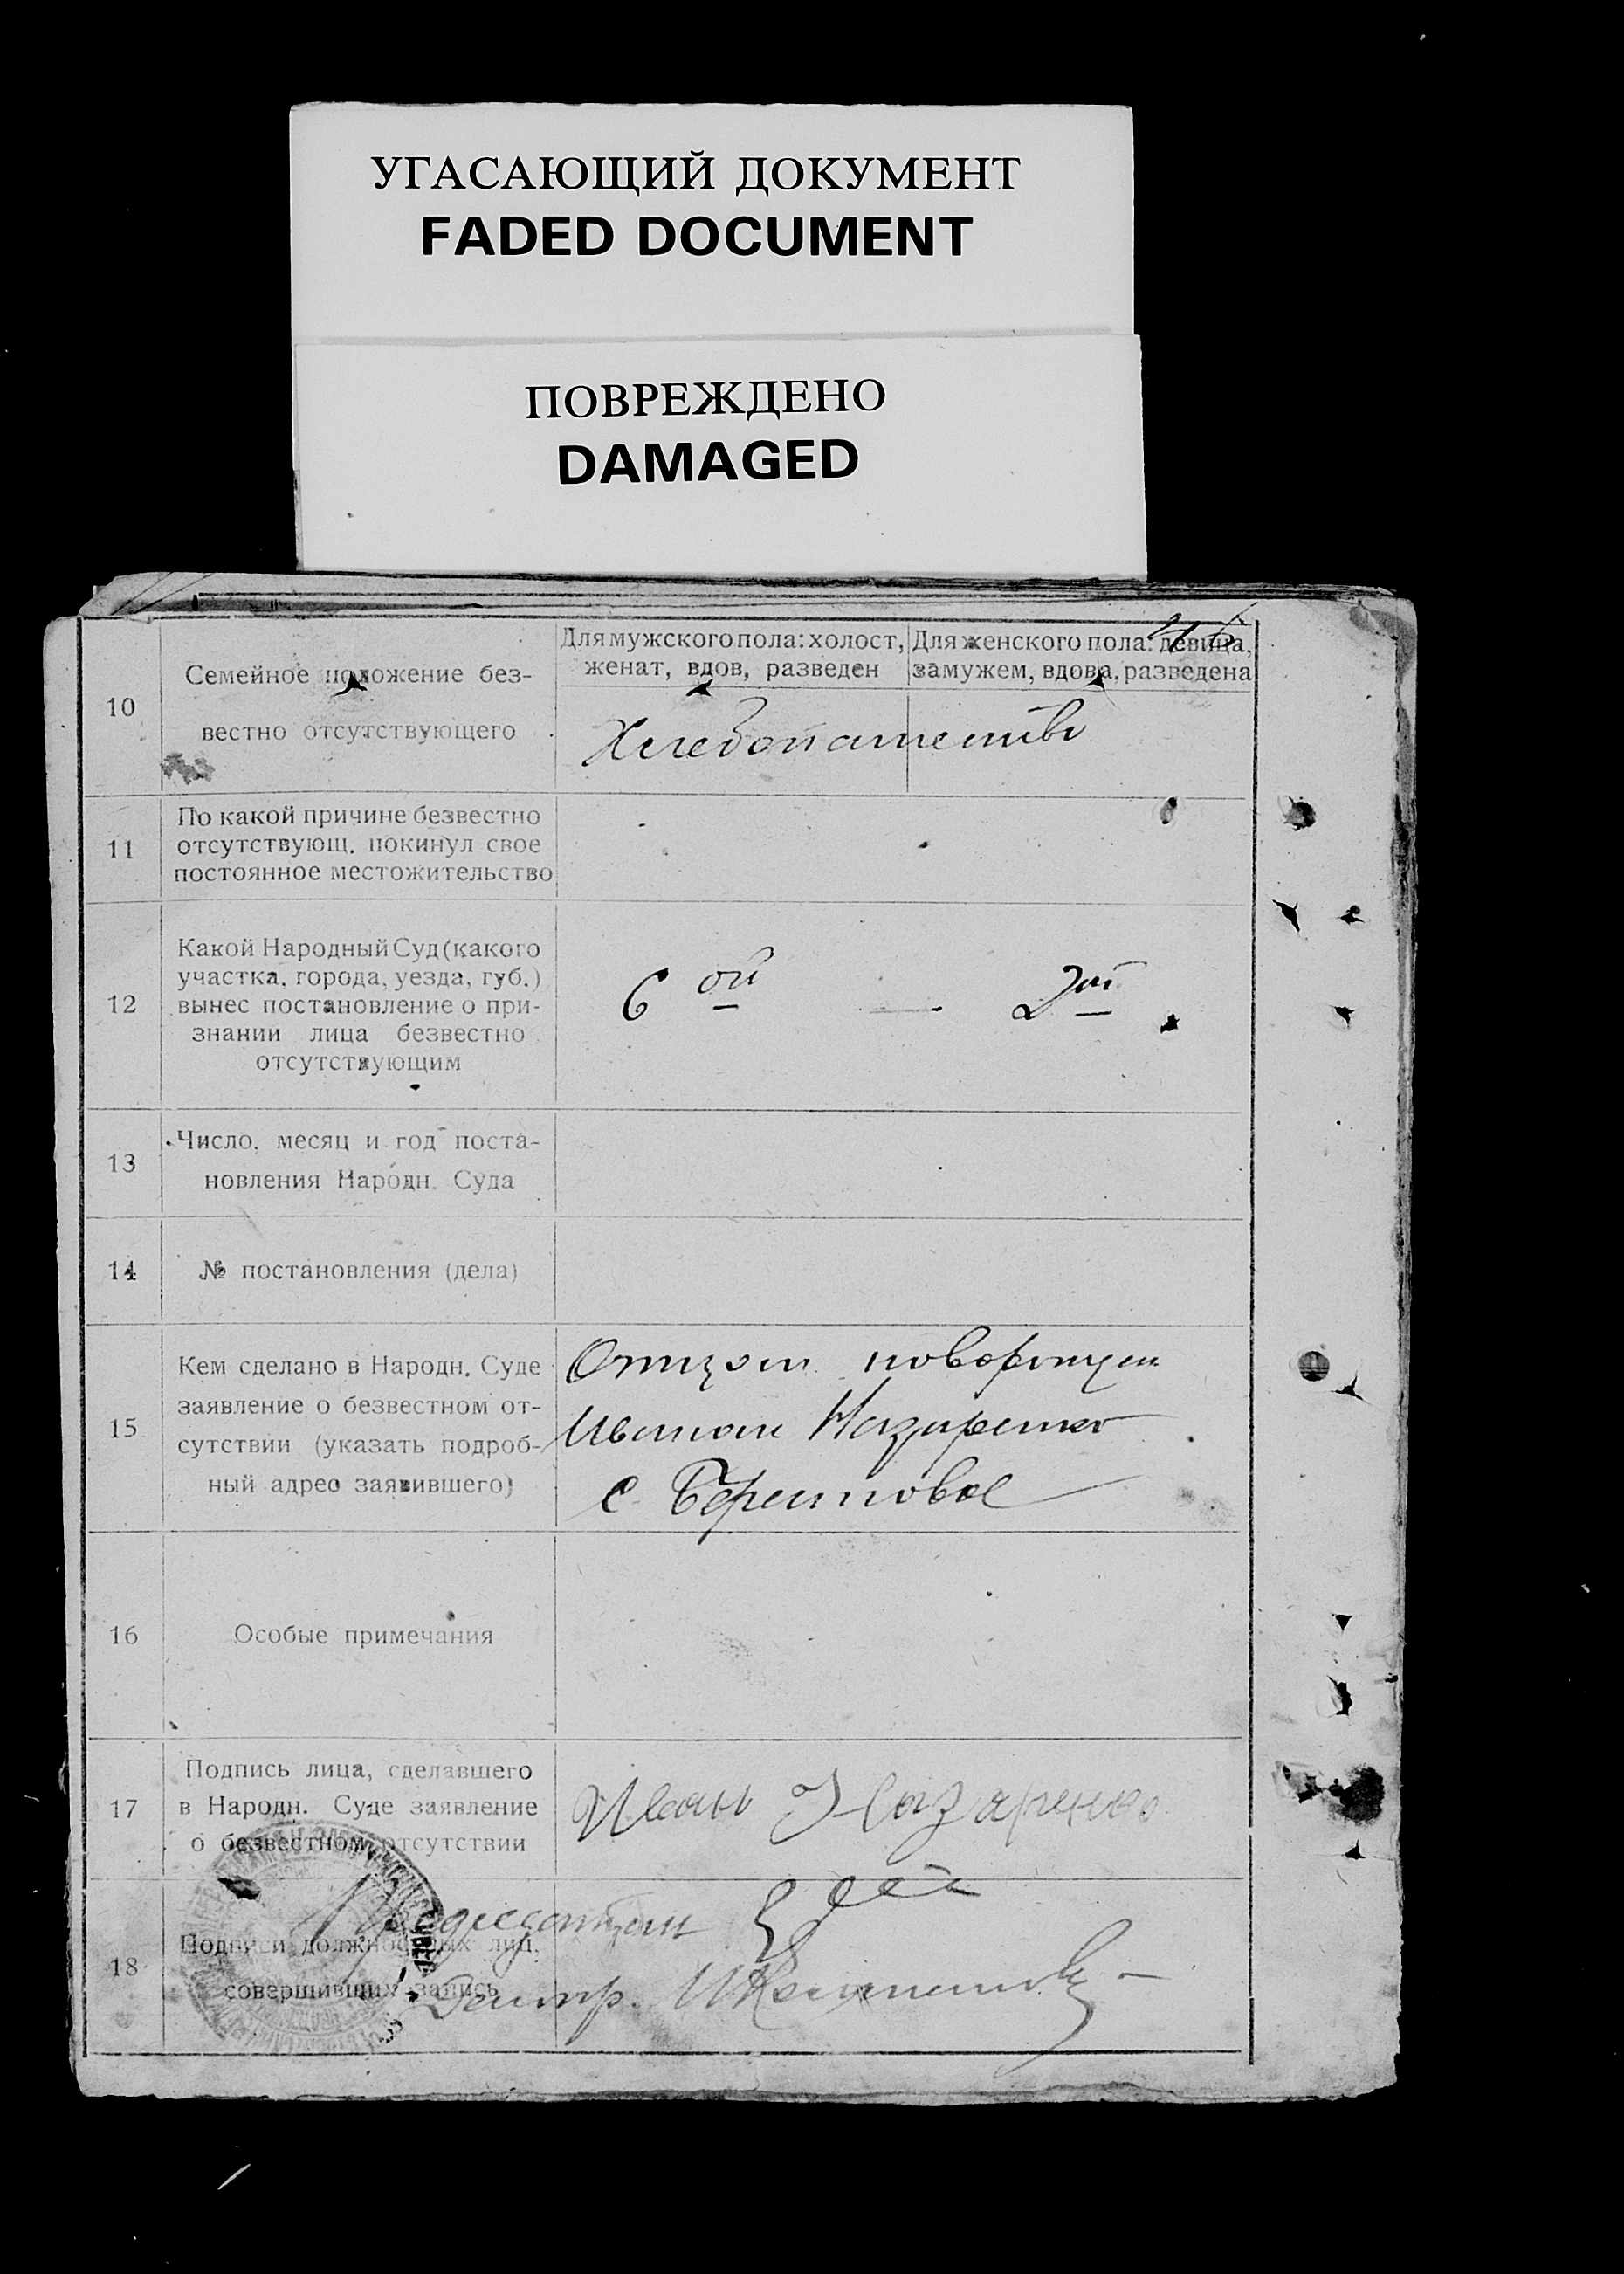 УГАСАЮЩИЙ ДОКУМЕНТ
FADED DOCUMENT
ПОВРЕЖДЕНО
DAMAGED
10
Семейное положение без-
вестно отсутствующего
Для мужского пола: холост,
женат, вдов, разведен
Для женского пола: девица,
замужем, вдова, разведена
Хлебопашество
11
По какой причине безвестно
отсутствующ. покинул свое
постоянное местожительство
12
Какой Народный Суд (какого
участка, города, уезда, губ.)
вынес постановление о при-
знании лица безвестно
отсутствующим
6 ой — 2 ой
13
Число, месяц и год поста-
новления Народн. Суда
14
№ постановления (дела)
15
Кем сделано в Народн. Суде
заявление о безвестном от-
сутствии (указать подроб-
ный адрес заявившего)
Отцом
Иваном Назаренко
с. Берестовое
16
Особые примечания
17
Подпись лица, сделавшего
в Народн. Суде заявление
о безвестном отсутствии
Иван Назаренко
18
Подписи должностных лиц,
совершивших запись